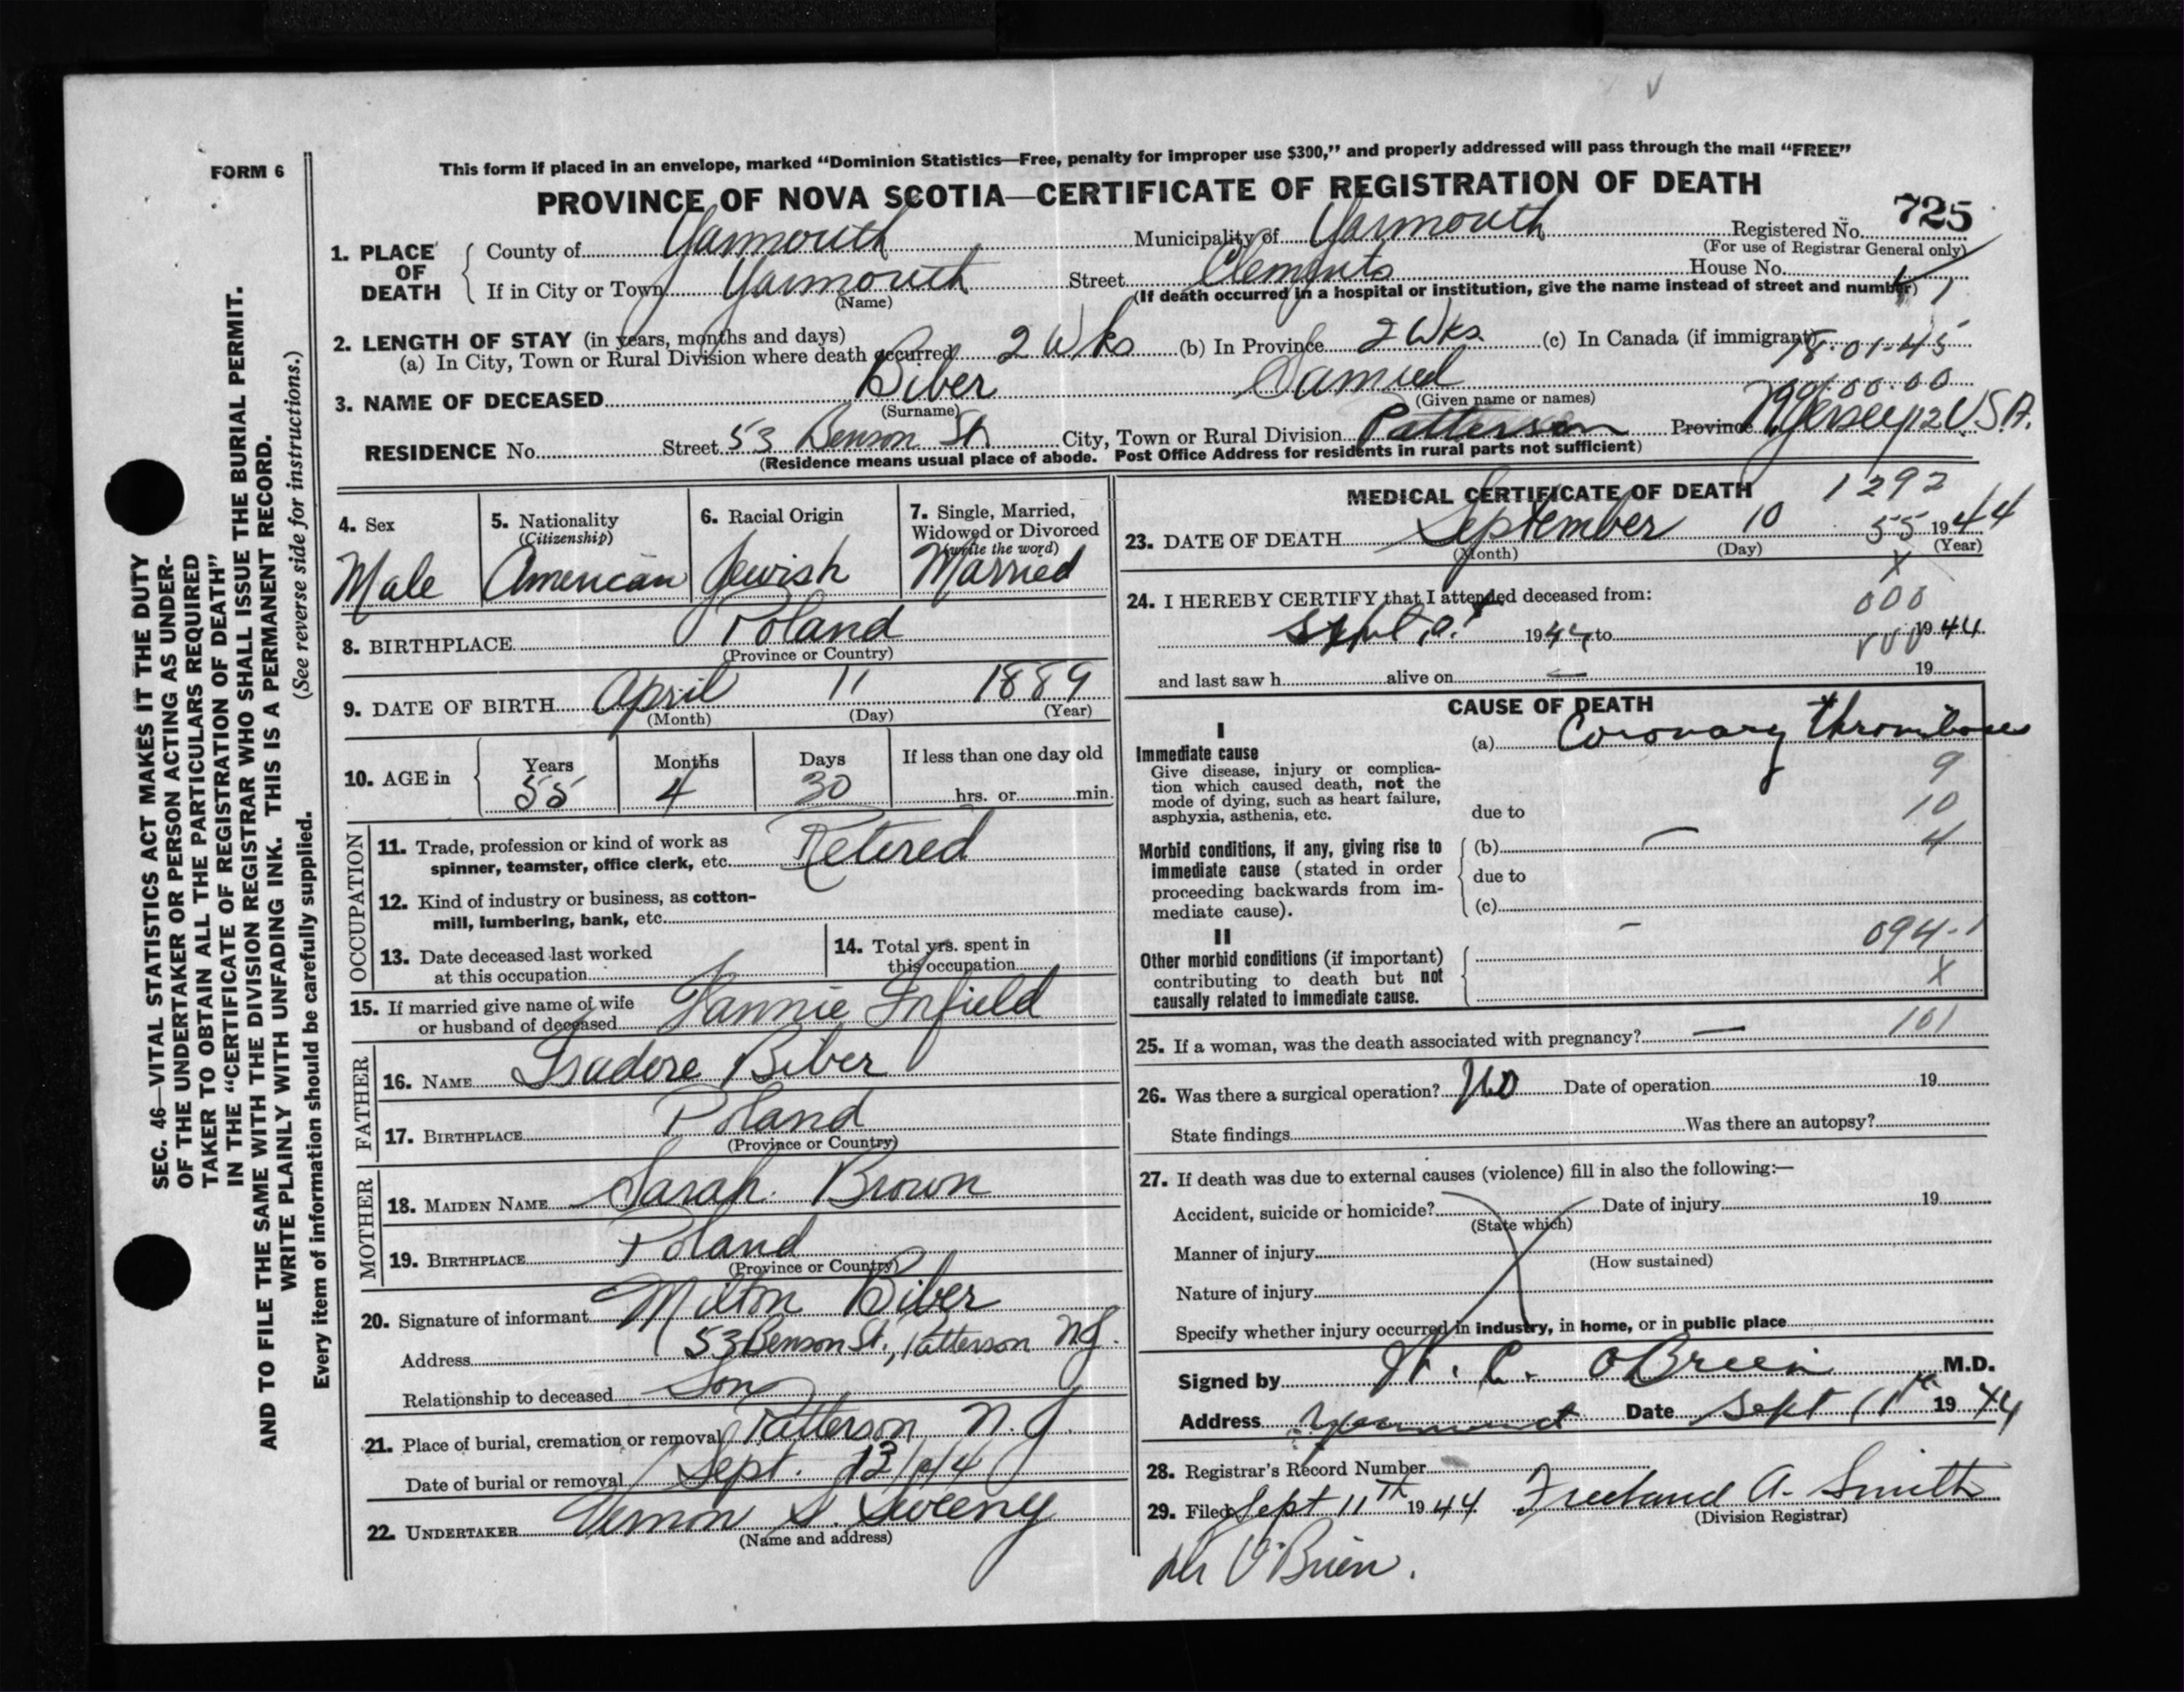 FORM 6
This form if placed in an envelope, marked “Dominion Statistics—Free, penalty for improper use $300,” and properly addressed will pass through the mail “FREE”
PROVINCE OF NOVA SCOTIA—CERTIFICATE OF REGISTRATION OF DEATH
725
1. PLACE OF DEATH
County of Yarmouth Municipality of Yarmouth Registered No.
(For use of Registrar General only)
If in City or Town Yarmouth Street Clements House No.
(Name) (If death occurred in a hospital or institution, give the name instead of street and number)
2. LENGTH OF STAY (in years, months and days)
(a) In City, Town or Rural Division where death occurred 2 Wks (b) In Province 2 Wks. (c) In Canada (if immigrant)
78.01-45
3. NAME OF DECEASED Biber Samuel
(Surname) (Given name or names)
RESIDENCE No. Street 53 Benson St City, Town or Rural Division Patterson Province N Jersey USA.
(Residence means usual place of abode. Post Office Address for residents in rural parts not sufficient)
4. Sex
Male
5. Nationality
(Citizenship)
American
6. Racial Origin
Jewish
7. Single, Married,
Widowed or Divorced
(write the word)
Married
8. BIRTHPLACE Poland
(Province or Country)
9. DATE OF BIRTH April 11 1889
(Month) (Day) (Year)
10. AGE in
Years Months Days If less than one day old
55 4 30 hrs. or min.
OCCUPATION
11. Trade, profession or kind of work as
spinner, teamster, office clerk, etc. Retired
12. Kind of industry or business, as cotton-
mill, lumbering, bank, etc.
13. Date deceased last worked
at this occupation
14. Total yrs. spent in
this occupation
15. If married give name of wife
or husband of deceased Fannie Infield
FATHER
16. NAME Isadore Biber
17. BIRTHPLACE Poland
(Province or Country)
MOTHER
18. MAIDEN NAME Sarah Brown
19. BIRTHPLACE Poland
(Province or Country)
20. Signature of informant Milton Biber
Address 53 Benson St., Patterson N.J.
Relationship to deceased Son
21. Place of burial, cremation or removal Patterson N.J.
Date of burial or removal Sept. 12/44
22. UNDERTAKER Vernon S. Sweeny
(Name and address)
MEDICAL CERTIFICATE OF DEATH
1292
23. DATE OF DEATH September 10 55 1944
(Month) (Day) (Year)
X
24. I HEREBY CERTIFY that I attended deceased from:
000
1944 to 1944
and last saw h alive on — 19
CAUSE OF DEATH
I
Immediate cause
Give disease, injury or complica-
tion which caused death, not the
mode of dying, such as heart failure,
asphyxia, asthenia, etc.
(a) Coronary thrombosis
9
10
due to
4
Morbid conditions, if any, giving rise to
immediate cause (stated in order
proceeding backwards from im-
mediate cause).
(b) —
due to
(c)
II
Other morbid conditions (if important)
contributing to death but not
causally related to immediate cause.
094-1
X
25. If a woman, was the death associated with pregnancy? — 101
26. Was there a surgical operation? No Date of operation 19
State findings Was there an autopsy?
27. If death was due to external causes (violence) fill in also the following:—
Accident, suicide or homicide? Date of injury 19
(State which)
Manner of injury
(How sustained)
Nature of injury
Specify whether injury occurred in industry, in home, or in public place
Signed by O'Brien M.D.
Address Yarmouth Date Sept 11th 1944
28. Registrar's Record Number
29. Filed Sept 11TH 1944 Freeland A. Smith
(Division Registrar)
Dr O'Brien.
SEC. 46—VITAL STATISTICS ACT MAKES IT THE DUTY
OF THE UNDERTAKER OR PERSON ACTING AS UNDER-
TAKER TO OBTAIN ALL THE PARTICULARS REQUIRED
IN THE “CERTIFICATE OF REGISTRATION OF DEATH”
AND TO FILE THE SAME WITH THE DIVISION REGISTRAR WHO SHALL ISSUE THE BURIAL PERMIT.
WRITE PLAINLY WITH UNFADING INK. THIS IS A PERMANENT RECORD.
Every item of information should be carefully supplied. (See reverse side for instructions.)